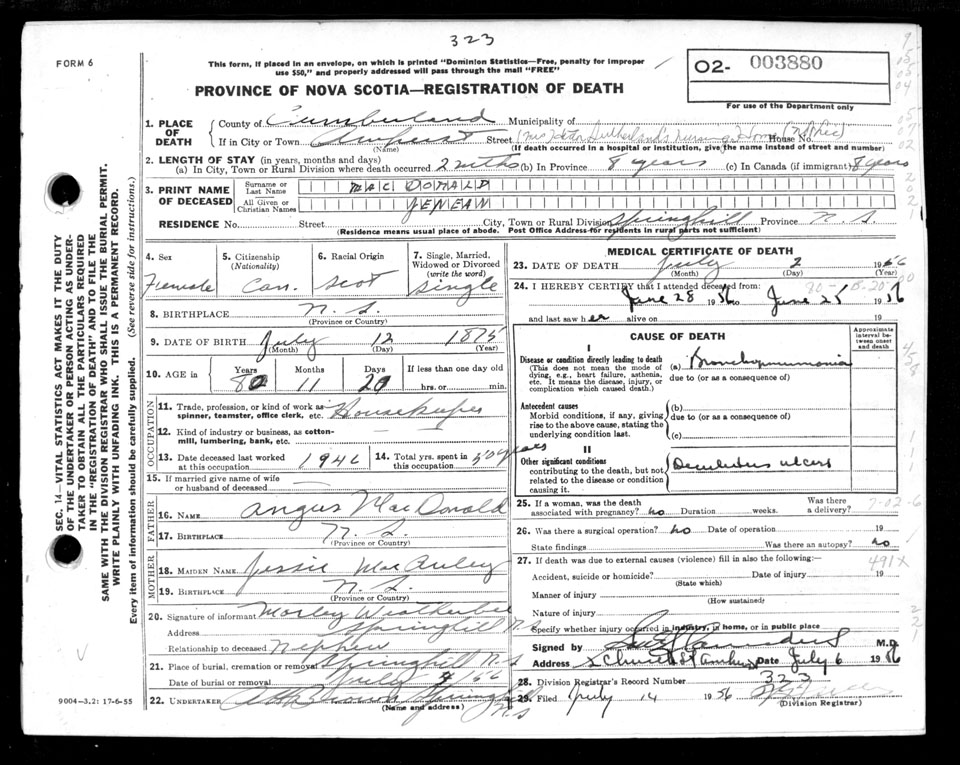 323
FORM 6
This form, if placed in an envelope, on which is printed "Dominion Statistics—Free, penalty for improper
use $50," and properly addressed will pass through the mail "FREE"
O2- 003880
For use of the Department only
PROVINCE OF NOVA SCOTIA—REGISTRATION OF DEATH
1. PLACE OF DEATH
County of Cumberland Municipality of
If in City or Town Amherst Street (Mrs) Sutherland's Nursing Home House No.
(Name) (If death occurred in a hospital or institution, give the name instead of street and number)
2. LENGTH OF STAY (in years, months and days)
(a) In City, Town or Rural Division where death occurred 2 mths (b) In Province 8 years (c) In Canada (if immigrant) 8 years
3. PRINT NAME OF DECEASED
Surname or Last Name MAC DONALD
All Given or Christian Names JENEAN
RESIDENCE No. Street City, Town or Rural Division Springhill Province N. S.
(Residence means usual place of abode. Post Office Address for residents in rural parts not sufficient)
4. Sex Female
5. Citizenship (Nationality) Can.
6. Racial Origin Scot
7. Single, Married, Widowed or Divorced (write the word) Single
8. BIRTHPLACE N. S.
(Province or Country)
9. DATE OF BIRTH July 12 1875
(Month) (Day) (Year)
10. AGE in Years 80 Months 11 Days 20 If less than one day old hrs. or min.
OCCUPATION
11. Trade, profession, or kind of work as spinner, teamster, office clerk, etc. Housekeeper
12. Kind of industry or business, as cotton-mill, lumbering, bank, etc. —
13. Date deceased last worked at this occupation 1946
14. Total yrs. spent in this occupation 50 years
15. If married give name of wife or husband of deceased —
FATHER
16. NAME Angus MacDonald
17. BIRTHPLACE N. S.
(Province or Country)
MOTHER
18. MAIDEN NAME Jessie MacAuley
19. BIRTHPLACE N. S.
(Province or Country)
20. Signature of informant Morley Weatherbee
Address Springhill N S
Relationship to deceased Nephew
21. Place of burial, cremation or removal Springhill N. S
Date of burial or removal July
22. UNDERTAKER Brown Springhill N. S
(Name and address)
MEDICAL CERTIFICATE OF DEATH
23. DATE OF DEATH July 2 1956
(Month) (Day) (Year)
24. I HEREBY CERTIFY that I attended deceased from:
June 28 1956 to June 25 1956
and last saw her alive on 19
CAUSE OF DEATH
Approximate interval between onset and death
I
Disease or condition directly leading to death
(This does not mean the mode of dying, e.g., heart failure, asthenia, etc. It means the disease, injury, or complication which caused death.)
(a) Bronchopneumonia
due to (or as a consequence of)
Antecedent causes
Morbid conditions, if any, giving rise to the above cause, stating the underlying condition last.
(b)
due to (or as a consequence of)
(c)
II
Other significant conditions
contributing to the death, but not related to the disease or condition causing it.
Decubitus ulcers
25. If a woman, was the death associated with pregnancy? no Duration weeks. Was there a delivery?
7-02-6
26. Was there a surgical operation? no Date of operation 19
State findings Was there an autopsy? no
27. If death was due to external causes (violence) fill in also the following:—
491X
Accident, suicide or homicide? Date of injury 19
(State which)
Manner of injury
(How sustained)
Nature of injury
Specify whether injury occurred in industry, in home, or in public place
Signed by M.D.
Address Church St Amherst Date July 6 1956
28. Division Registrar's Record Number 323
29. Filed July 14 1956
(Division Registrar)
9004—3.2: 17-6-55
SEC. 14—VITAL STATISTICS ACT MAKES IT THE DUTY
OF THE UNDERTAKER OR PERSON ACTING AS UNDER-
TAKER TO OBTAIN ALL THE PARTICULARS REQUIRED
IN THE "REGISTRATION OF DEATH" AND TO FILE THE
SAME WITH THE DIVISION REGISTRAR WHO SHALL ISSUE THE BURIAL PERMIT.
WRITE PLAINLY WITH UNFADING INK. THIS IS A PERMANENT RECORD.
Every item of information should be carefully supplied. (See reverse side for instructions.)